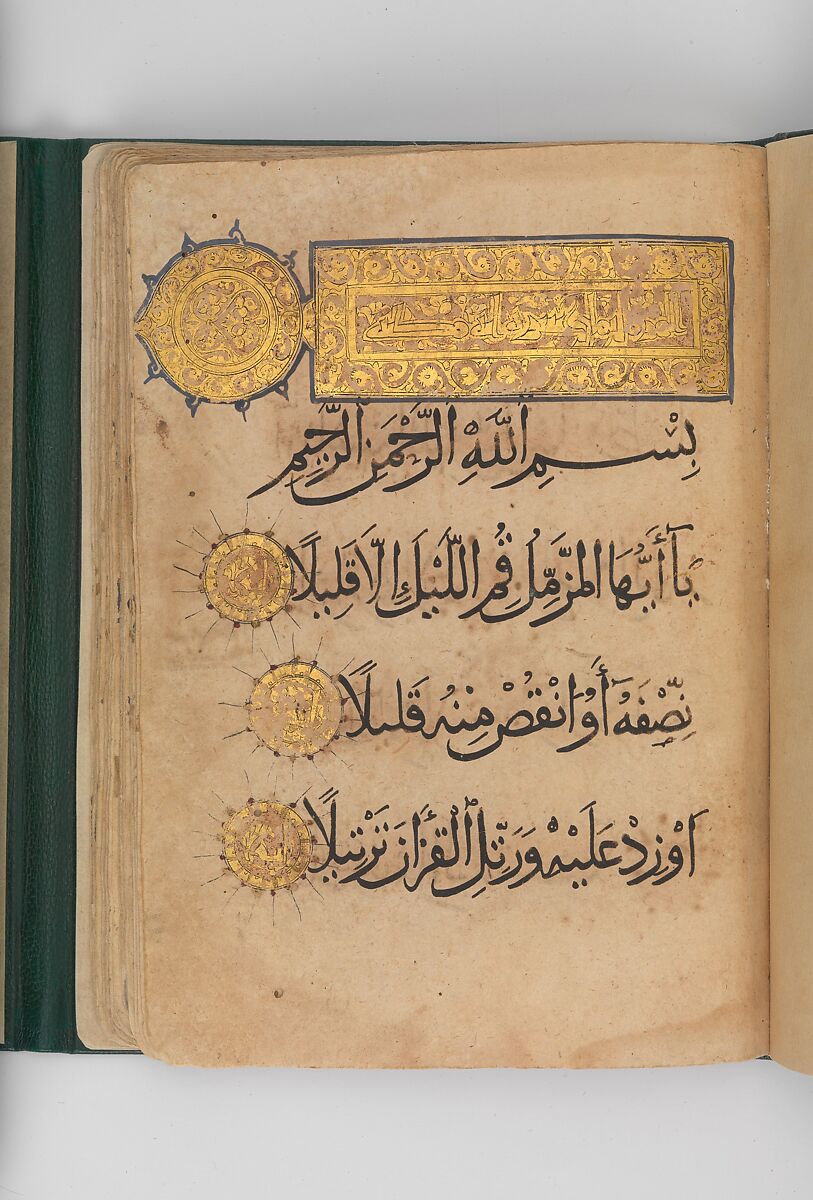 بِسْمِ اللَّهِ الرَّحْمَنِ الرَّحِيمِ
يَآ أَيُّهَا المزَّمِّلُ قُمِ اللَّيْلَ إِلَّا قَلِيلًا
نِّصْفَهُ أَوِ انْقُصْ مِنْهُ قَلِيلًا
اَوْ زِدْ عَلَيْهِ وَرَتِّلِ الْقُرْأَانَ تَرْتِيلًا